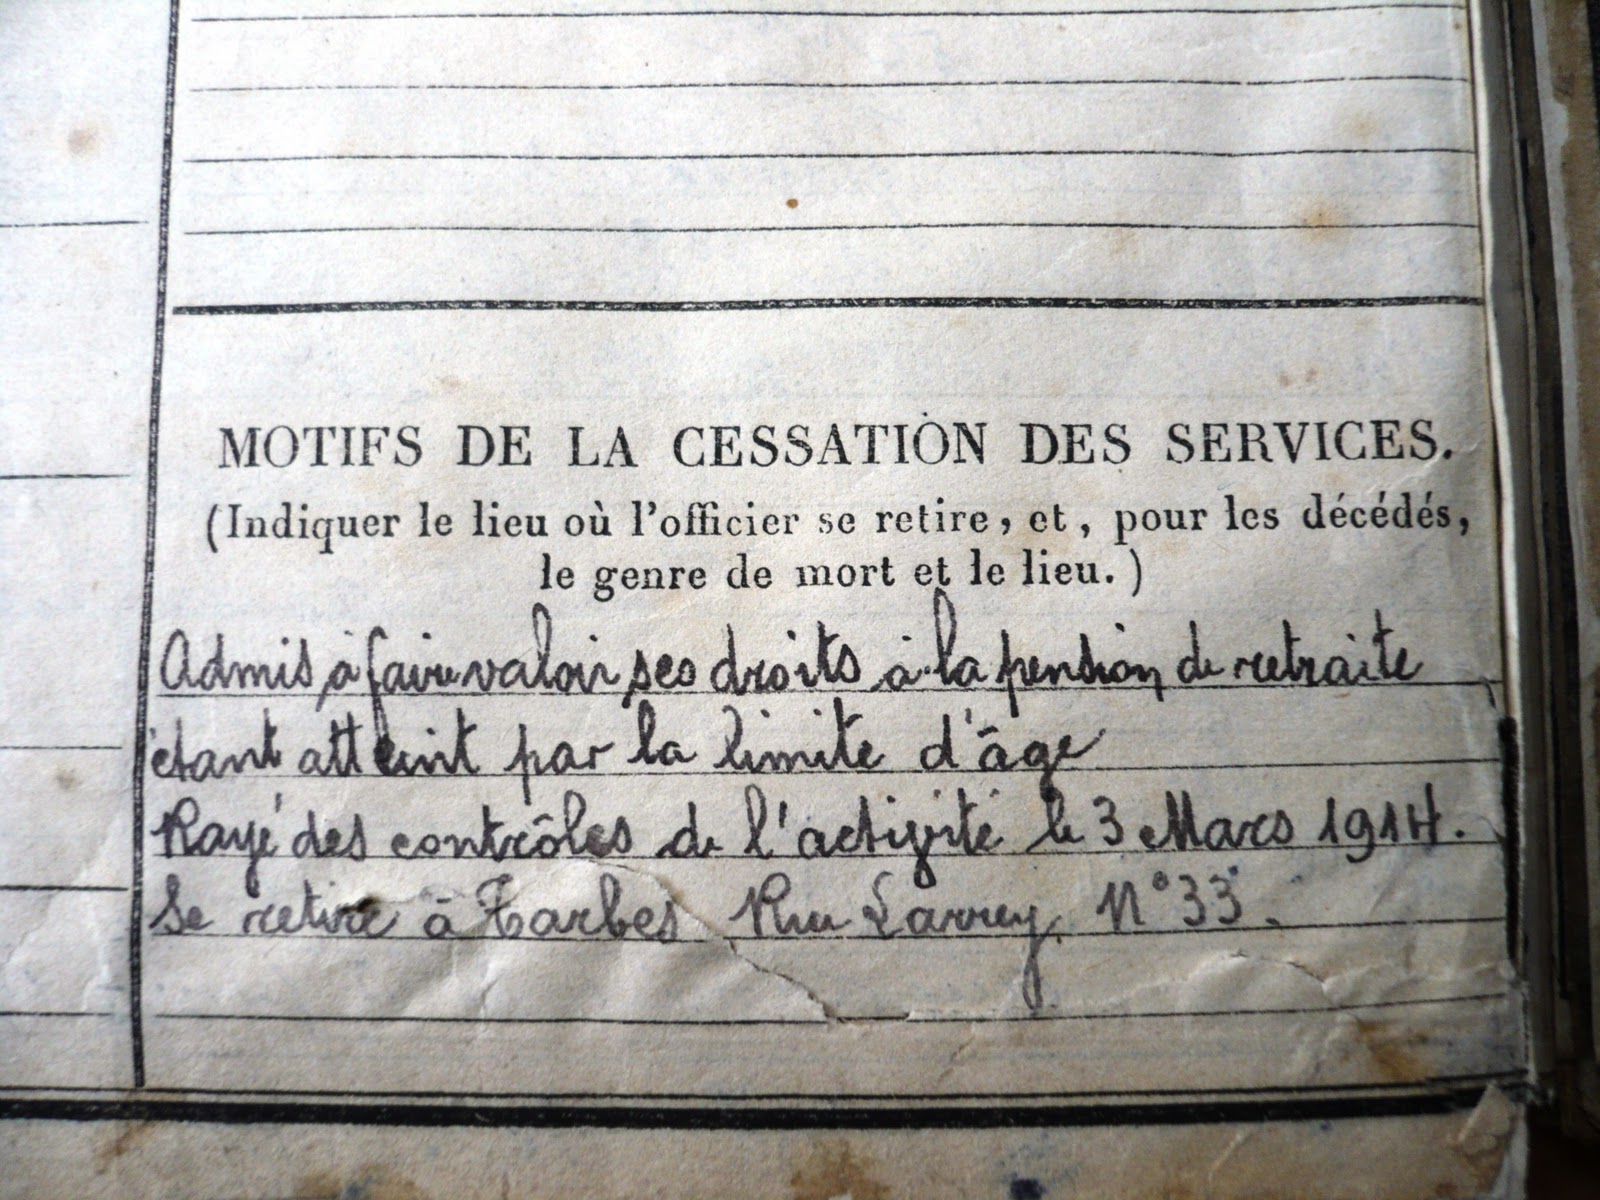 MOTIFS DE LA CESSATION DES SERVICES.
(Indiquer le lieu où l'officier se retire, et, pour les décédés,
le genre de mort et le lieu.)
Admis à faire valoir ses droits à la pension de retraite
étant atteint par la limite d'âge
Rayé des contrôles de l'activité le 3 Mars 1914.
Se retire à Tarbes Rue Larrey, N° 33.